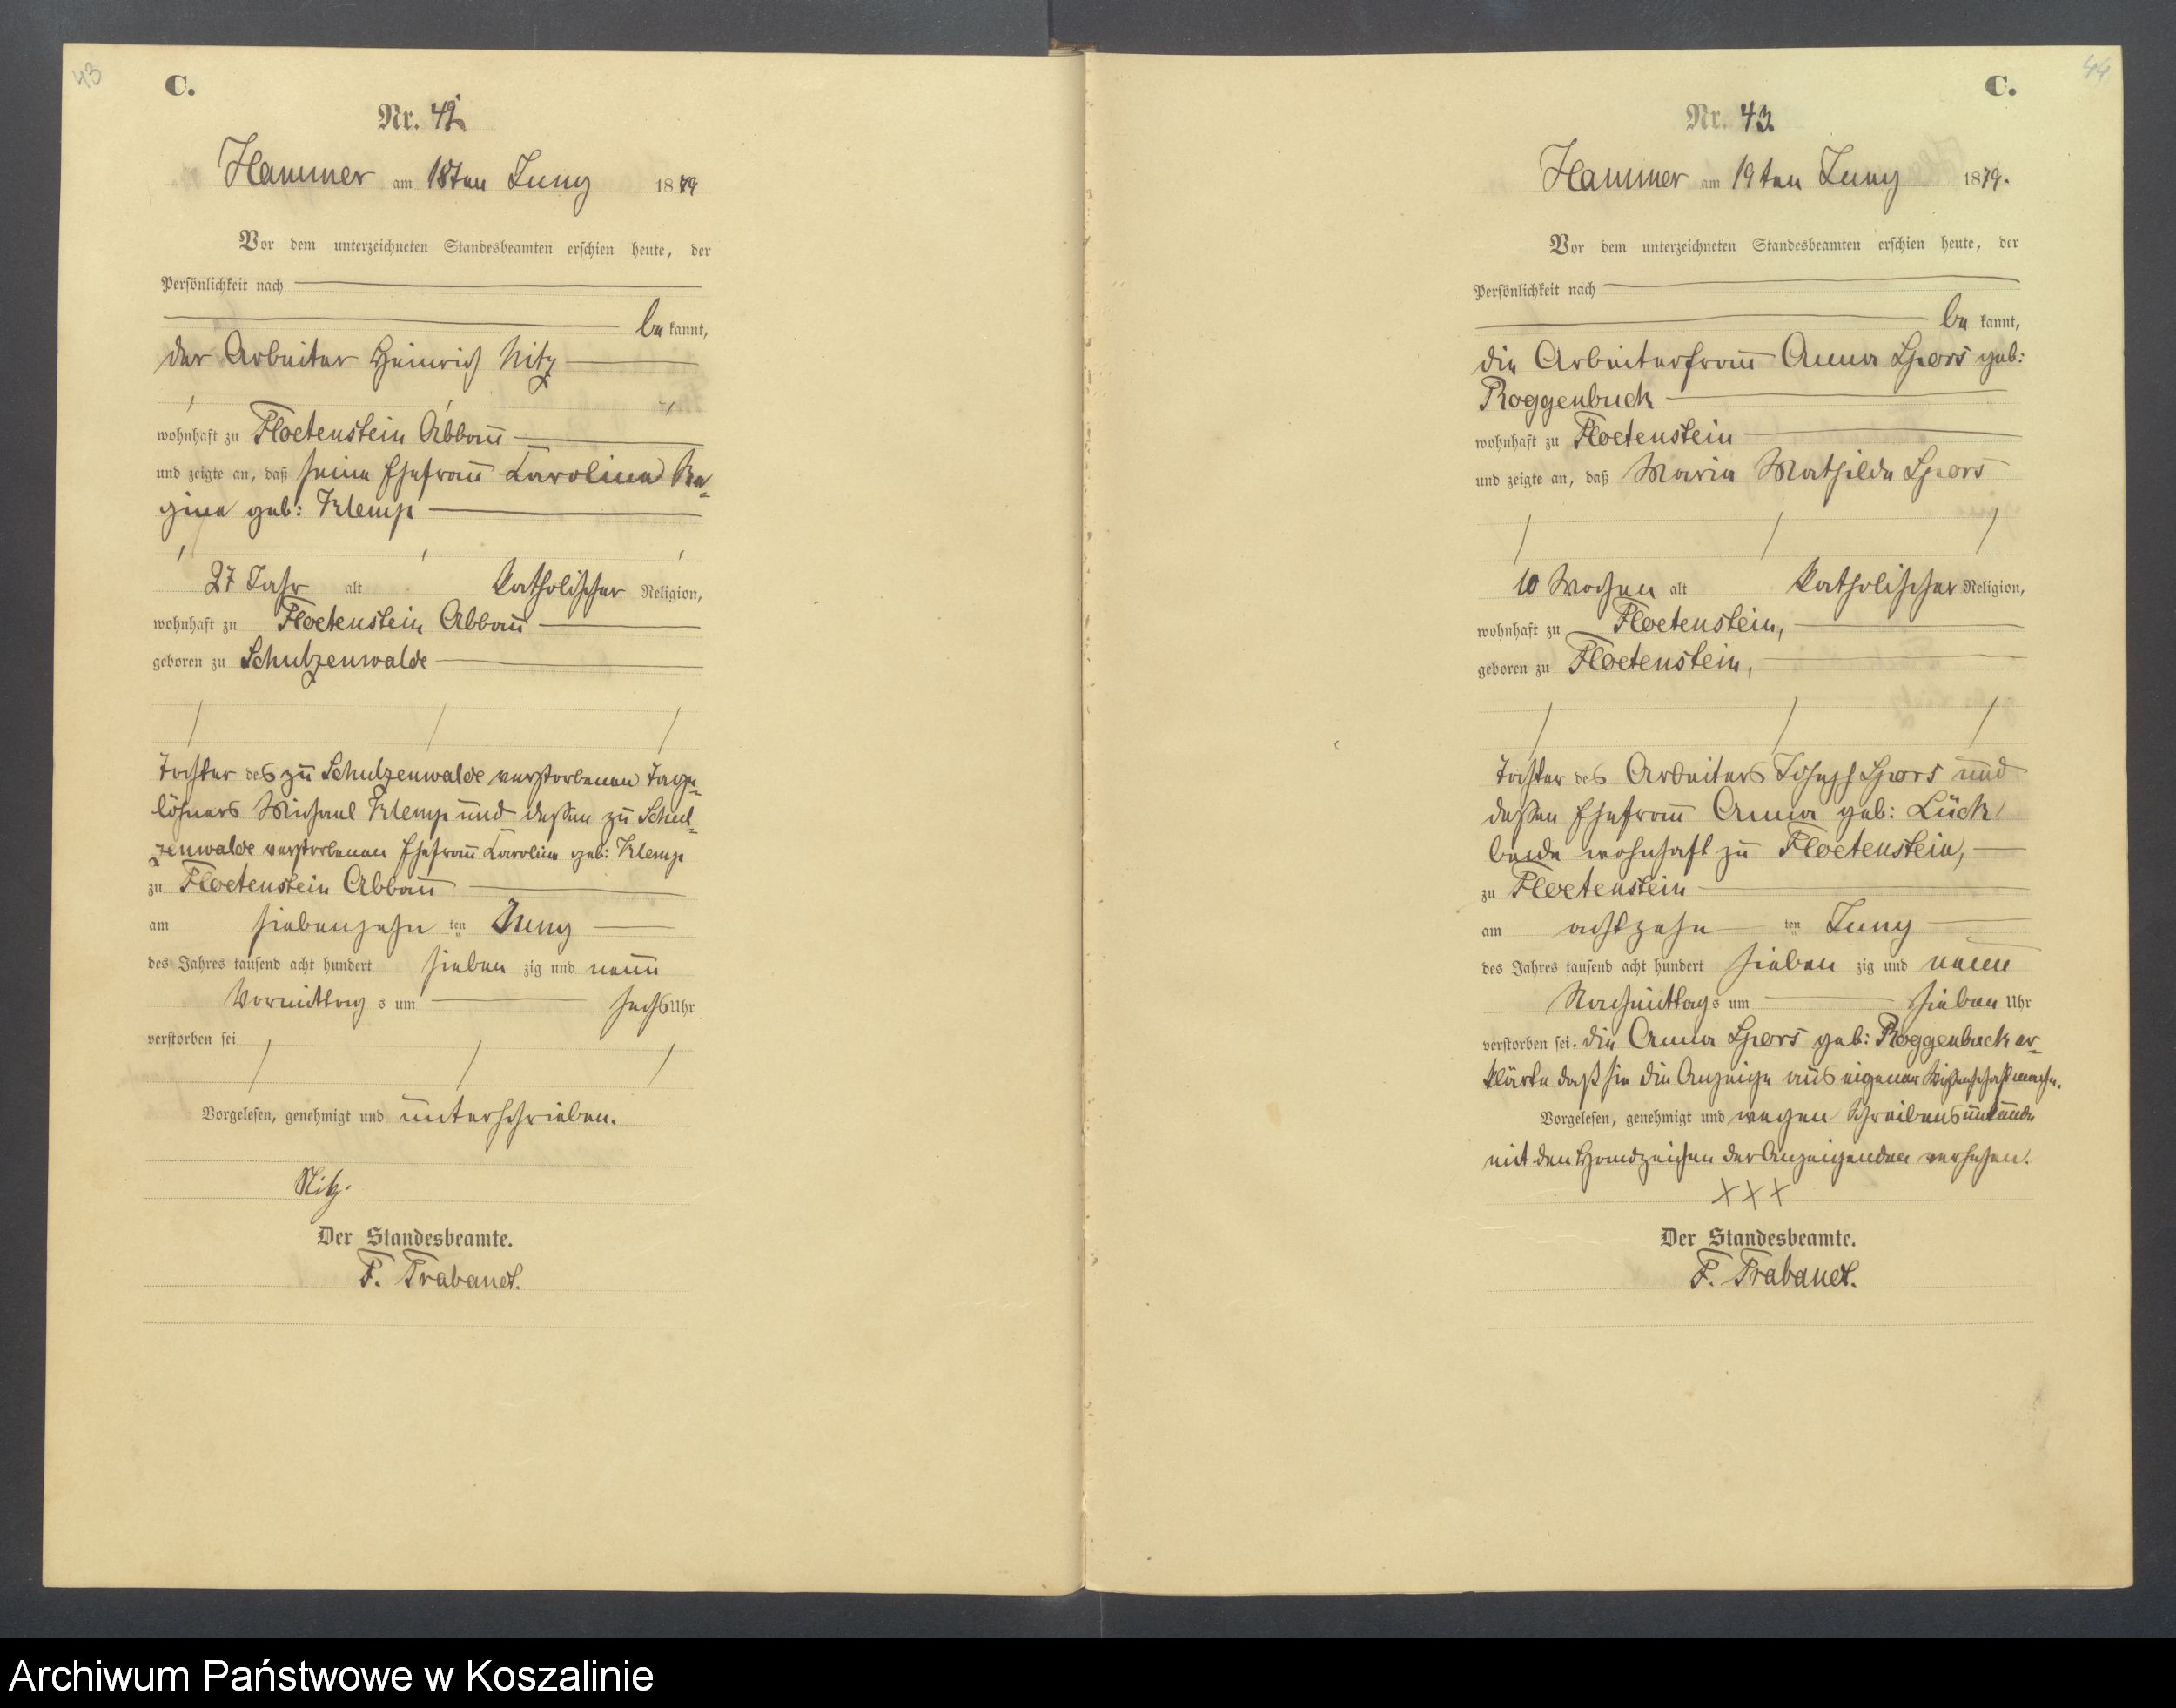 43
C.
Nr. 42
Hammer am 18ten Juny 1879
Vor dem unterzeichneten Standesbeamten erschien heute, der
Persönlichkeit nach
be kannt,
der Arbeiter Heinrich Nitz
wohnhaft zu Floetenstein Abbau
und zeigte an, daß seine Ehefrau Karoline Re-
gine geb: Klemp
27 Jahr alt katholischer Religion,
wohnhaft zu Floetenstein Abbau
geboren zu Schulzenwalde
Tochter des zu Schulzenwalde verstorbenen Tage-
löhners Michael Klemp und dessen zu Schul-
zenwalde verstorbenen Ehefrau Karoline geb: Klemp
zu Floetenstein Abbau
am siebenzehn ten Juny
des Jahres tausend acht hundert sieben zig und neun
Vormittag s um sechs Uhr
verstorben sei
Vorgelesen, genehmigt und unterschrieben.
Nitz.
Der Standesbeamte.
F. Trabandt.
44
C.
Nr. 43.
Hammer am 19ten Juny 1879.
Vor dem unterzeichneten Standesbeamten erschien heute, der
Persönlichkeit nach
be kannt,
die Arbeiterfrau Anna Spors geb:
Roggenbuck
wohnhaft zu Floetenstein
und zeigte an, daß Maria Mathilde Spors
10 Wochen alt katholischer Religion,
wohnhaft zu Floetenstein,
geboren zu Floetenstein,
Tochter des Arbeiters Joseph Spors und
dessen Ehefrau Anna geb: Lück
beide wohnhaft zu Floetenstein,
zu Floetenstein
am achtzehn ten Juny
des Jahres tausend acht hundert sieben zig und neun
Nachmittag s um sieben Uhr
verstorben sei. die Anna Spors geb: Roggenbuck er-
klärte daß sie die Anzeige aus eigener Wissenschaft mache.
Vorgelesen, genehmigt und wegen Schreibensunkunde
mit den Handzeichen der Anzeigenden versehen.
XXX
Der Standesbeamte.
F. Trabandt.
Archiwum Państwowe w Koszalinie